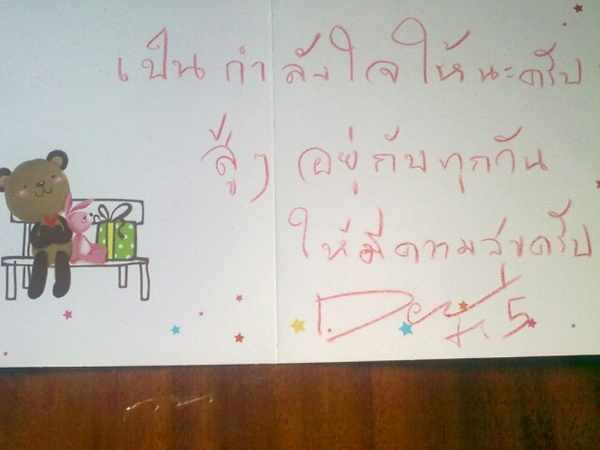 เป็นกำลังใจให้นะครับ
สู้ๆ อยู่กับทุกวัน
ให้มีความสุขครับ